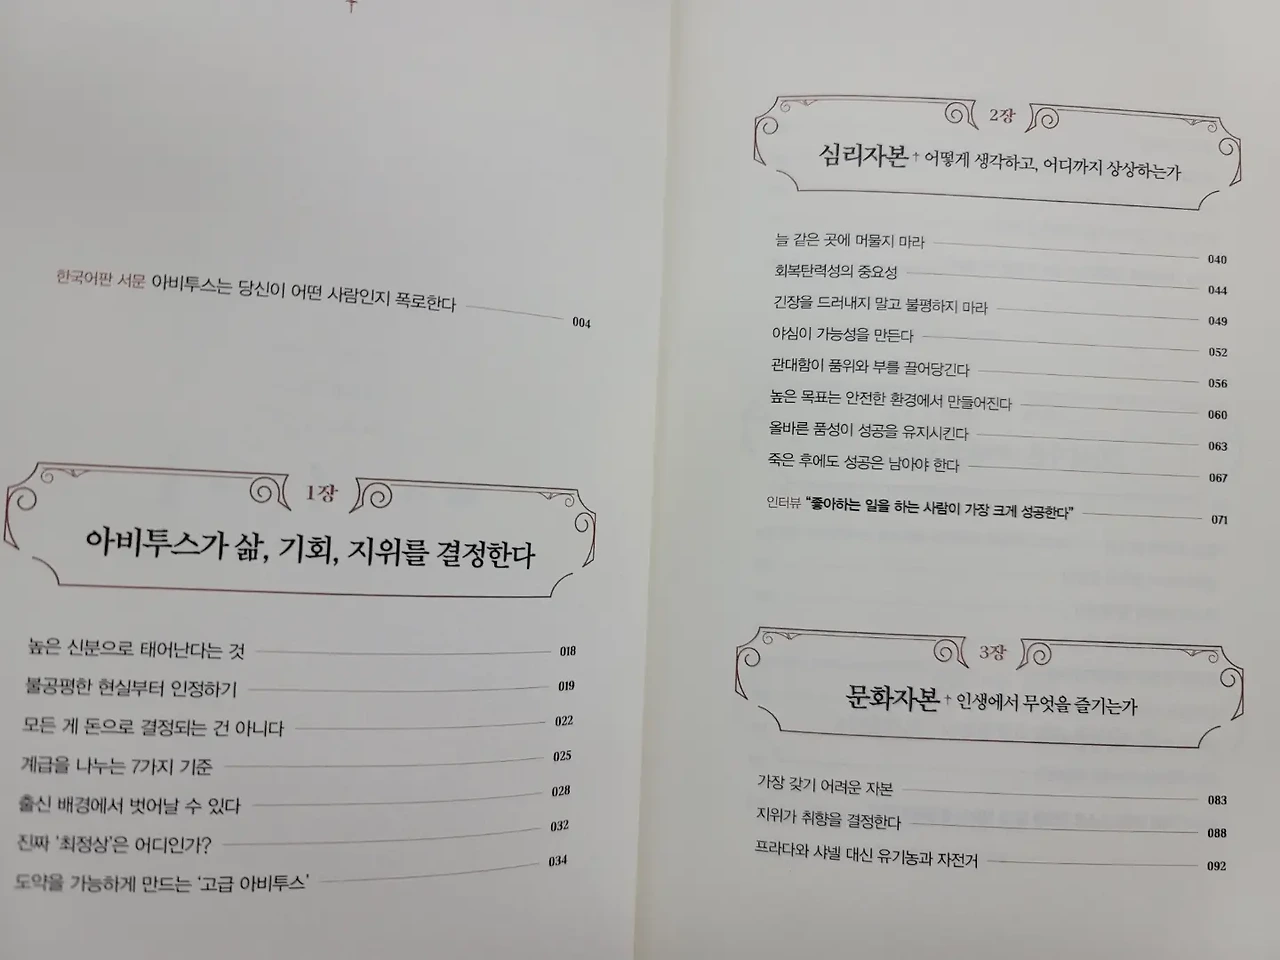 한국어판 서문 아비투스는 당신이 어떤 사람인지 폭로한다 004
1장
아비투스가 삶, 기회, 지위를 결정한다
높은 신분으로 태어난다는 것 018
불공평한 현실부터 인정하기 019
모든 게 돈으로 결정되는 건 아니다 022
계급을 나누는 7가지 기준 025
출신 배경에서 벗어날 수 있다 028
진짜 '최정상'은 어디인가? 032
도약을 가능하게 만드는 '고급 아비투스' 034
2장
심리자본 † 어떻게 생각하고, 어디까지 상상하는가
늘 같은 곳에 머물지 마라 040
회복탄력성의 중요성 044
긴장을 드러내지 말고 불평하지 마라 049
야심이 가능성을 만든다 052
관대함이 품위와 부를 끌어당긴다 056
높은 목표는 안전한 환경에서 만들어진다 060
올바른 품성이 성공을 유지시킨다 063
죽은 후에도 성공은 남아야 한다 067
인터뷰 "좋아하는 일을 하는 사람이 가장 크게 성공한다" 071
3장
문화자본 † 인생에서 무엇을 즐기는가
가장 갖기 어려운 자본 083
지위가 취향을 결정한다 088
프라다와 샤넬 대신 유기농과 자전거 092